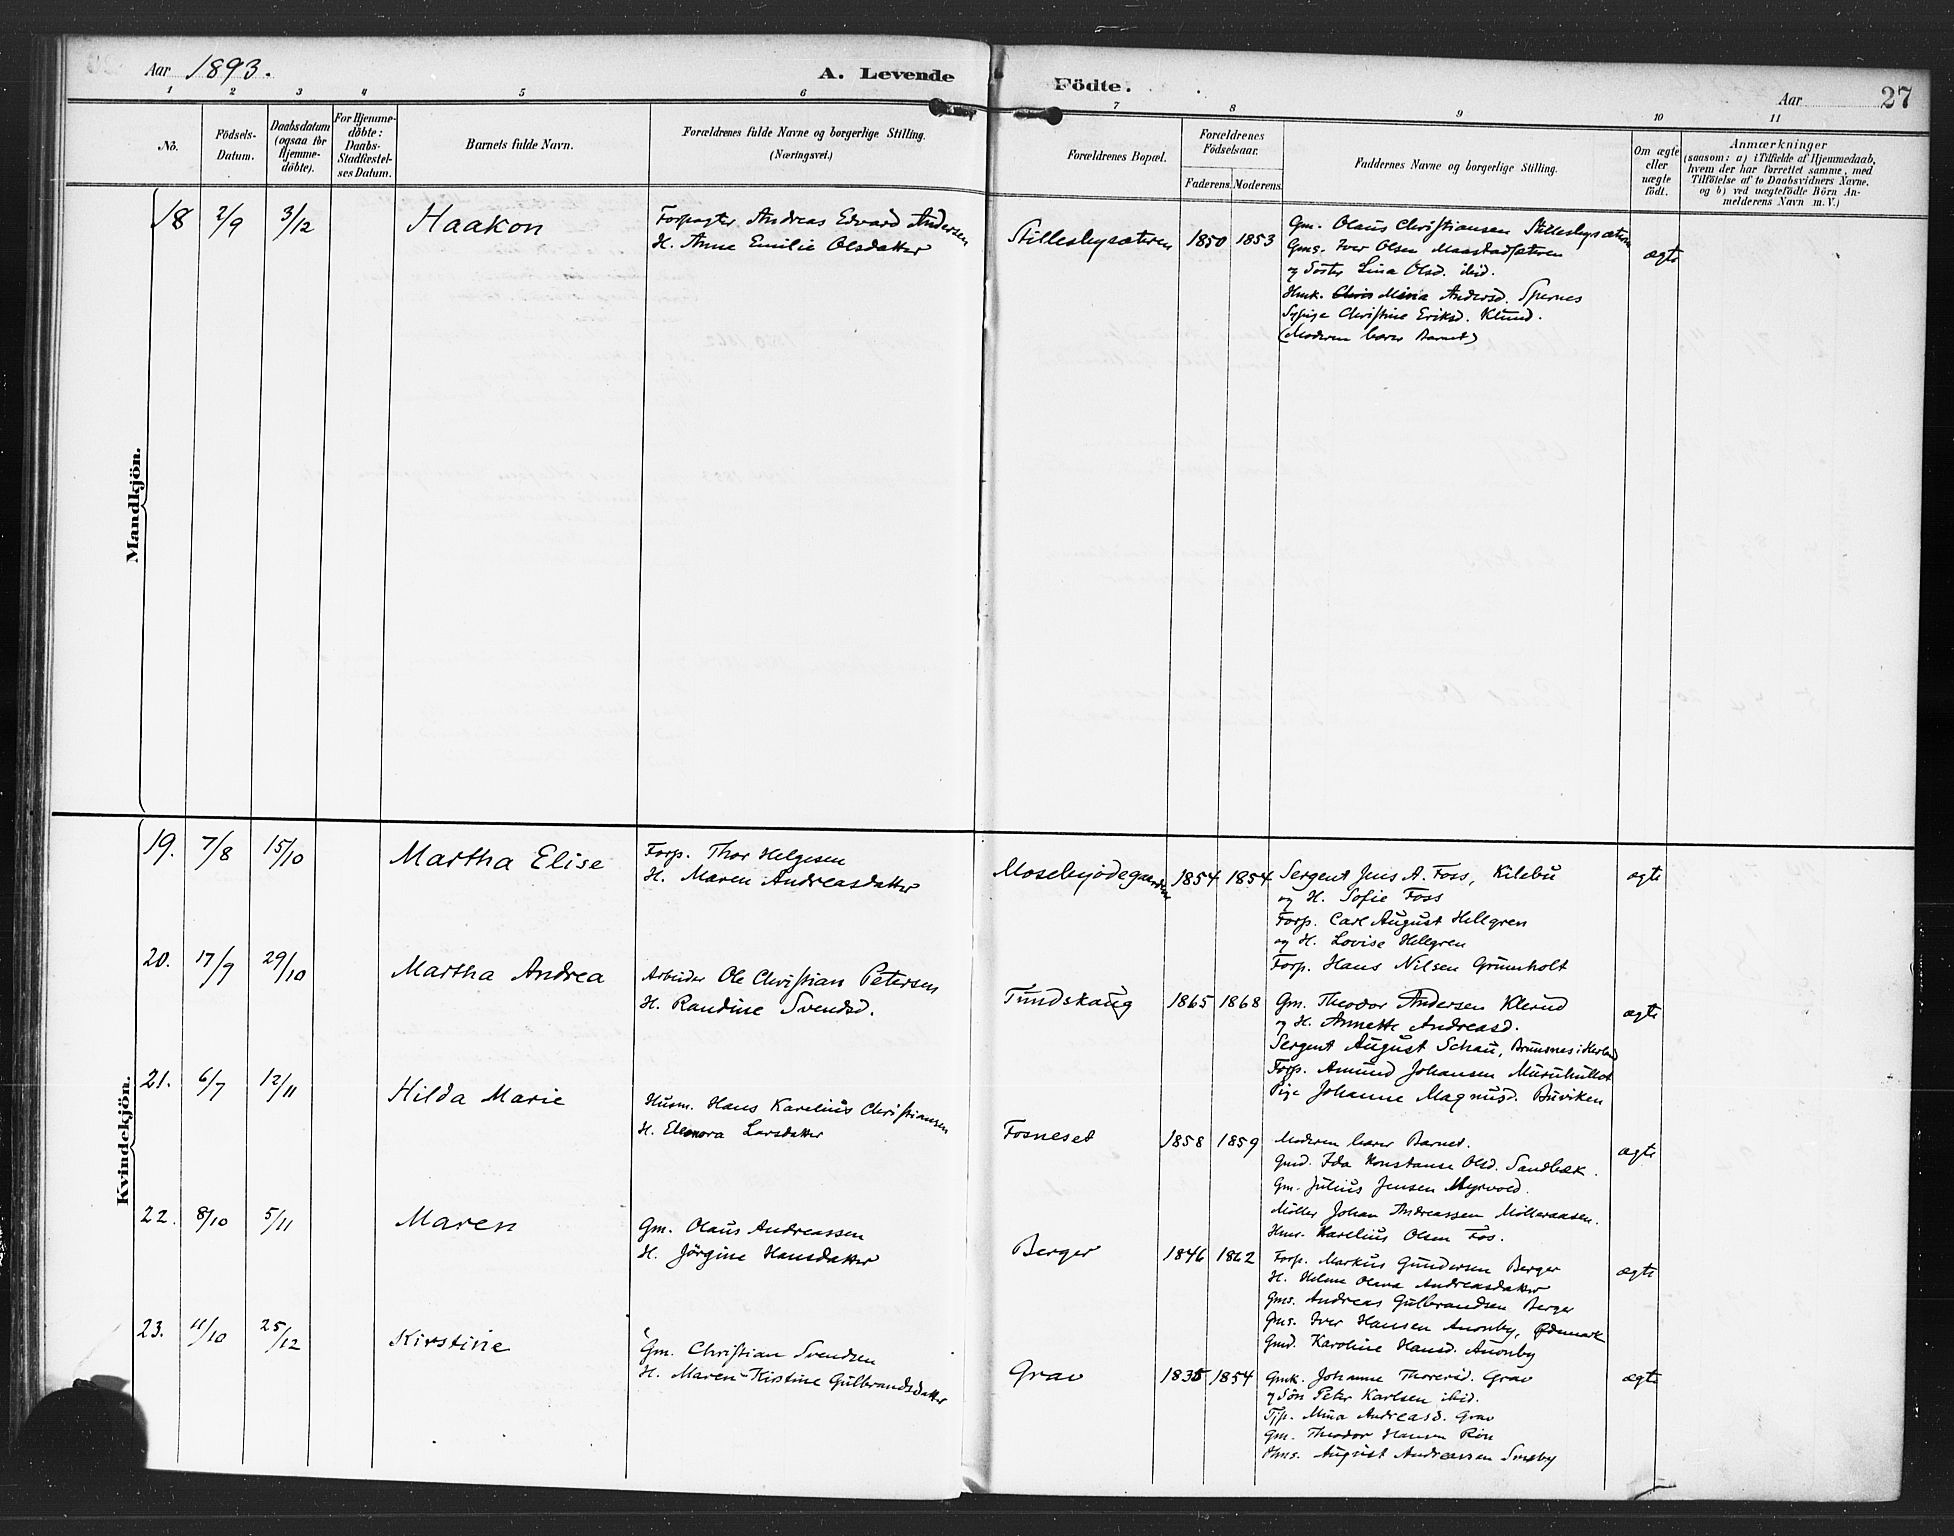 Aar 1893.
A. Levende Födte.
Aar 27
1 2 3 4 5 6 7 8 9 10 11
No.
Födsels-
Datum.
Daabsdatum
(ogsaa for
Hjemme-
döbte).
For Hjemme-
döbte:
Daabs-
Stadfæstel-
ses Datum.
Barnets fulde Navn.
Forældrenes fulde Navne og borgerlige Stilling.
(Næringsvei.)
Forældrenes Bopæl.
Forældrenes
Födselsaar.
Faderens. Moderens.
Faddernes Navne og borgerlige Stilling.
Om ægte
eller
uægte
födt.
Anmærkninger
(saasom: a) i Tilfælde af Hjemmedaab,
hvem der har forrettet samme, med
Tilföielse af to Daabsvidners Navne,
og b) ved uægtefödte Börn An-
melderens Navn m. V.)
Mandkjön.
18 2/9 3/12 Haakon
Forpagter Andreas Edvard Andersen
H. Anne Emilie Olsdatter
Stillesbysæteren 1850 1853
Gm. Olaus Christiansen Stillesbysæteren
Gms. Iver Olsen Maastadsæteren
og Søster Lina Olsd. ibid.
Hmk. Maria Andersd. Spernes
Sypige Christine Eriksd. Klund.
(Moderen bærer Barnet)
ægte
Kvindekjön.
19. 7/8 15/10 Martha Elise
Forp. Thor Helgesen
H. Maren Andreasdatter
Mosebyødegaarden 1854 1854
Sergent Jens A. Foss, Kilebu
og H. Sofie Foss
Forp. Carl August Hellgren
og H. Lovise Hellgren
Forp. Hans Nilsen Grünholt
ægte
20. 17/9 29/10 Martha Andrea
Arbeider Ole Christian Petersen
H. Randine Svendsd.
Tundskaug 1865 1868
Gm. Theodor Andersen Klerud
og H. Annette Andreasd.
Sergent August Schau, Brunsnes i
Forp. Amund Johansen
Pige Johanne Magnusd. Buviken
ægte
21. 6/7 12/11 Hilda Marie
Husm. Hans Karelius Christiansen
H. Eleonora Larsdatter
Fosneset 1858 1859
Moderen bærer Barnet.
Gmd. Ida Konstanse Olsd. Sandbæk.
Gm. Julius Jensen Myrvold.
Møller Johan Andreassen Mølleraasen.
Hms. Karelius Olsen Fos.
ægte
22. 8/10 5/11 Maren
Gm. Olaus Andreassen
H. Jørgine Hansdatter
Berger 1846 1862
Forp. Markus Gundersen Berger
H. Helene Olava Andreasdatter
Gms. Andreas Gulbrandsen Berger
Gms. Iver Hansen Anonby, Ødemark
Gmd. Karoline Hansd. Anonby
ægte
23. 11/10 25/12 Kirstine
Gm. Christian Svendsen
H. Maren Kistine Gulbrandsdatter
Grav 1835 1854
Gmk. Johanne Grav
og Søn Peter Karlsen ibid.
Tjp. Mina Andreasd. Grav
Gm. Theodor Hansen
Gms. August Andreassen
ægte